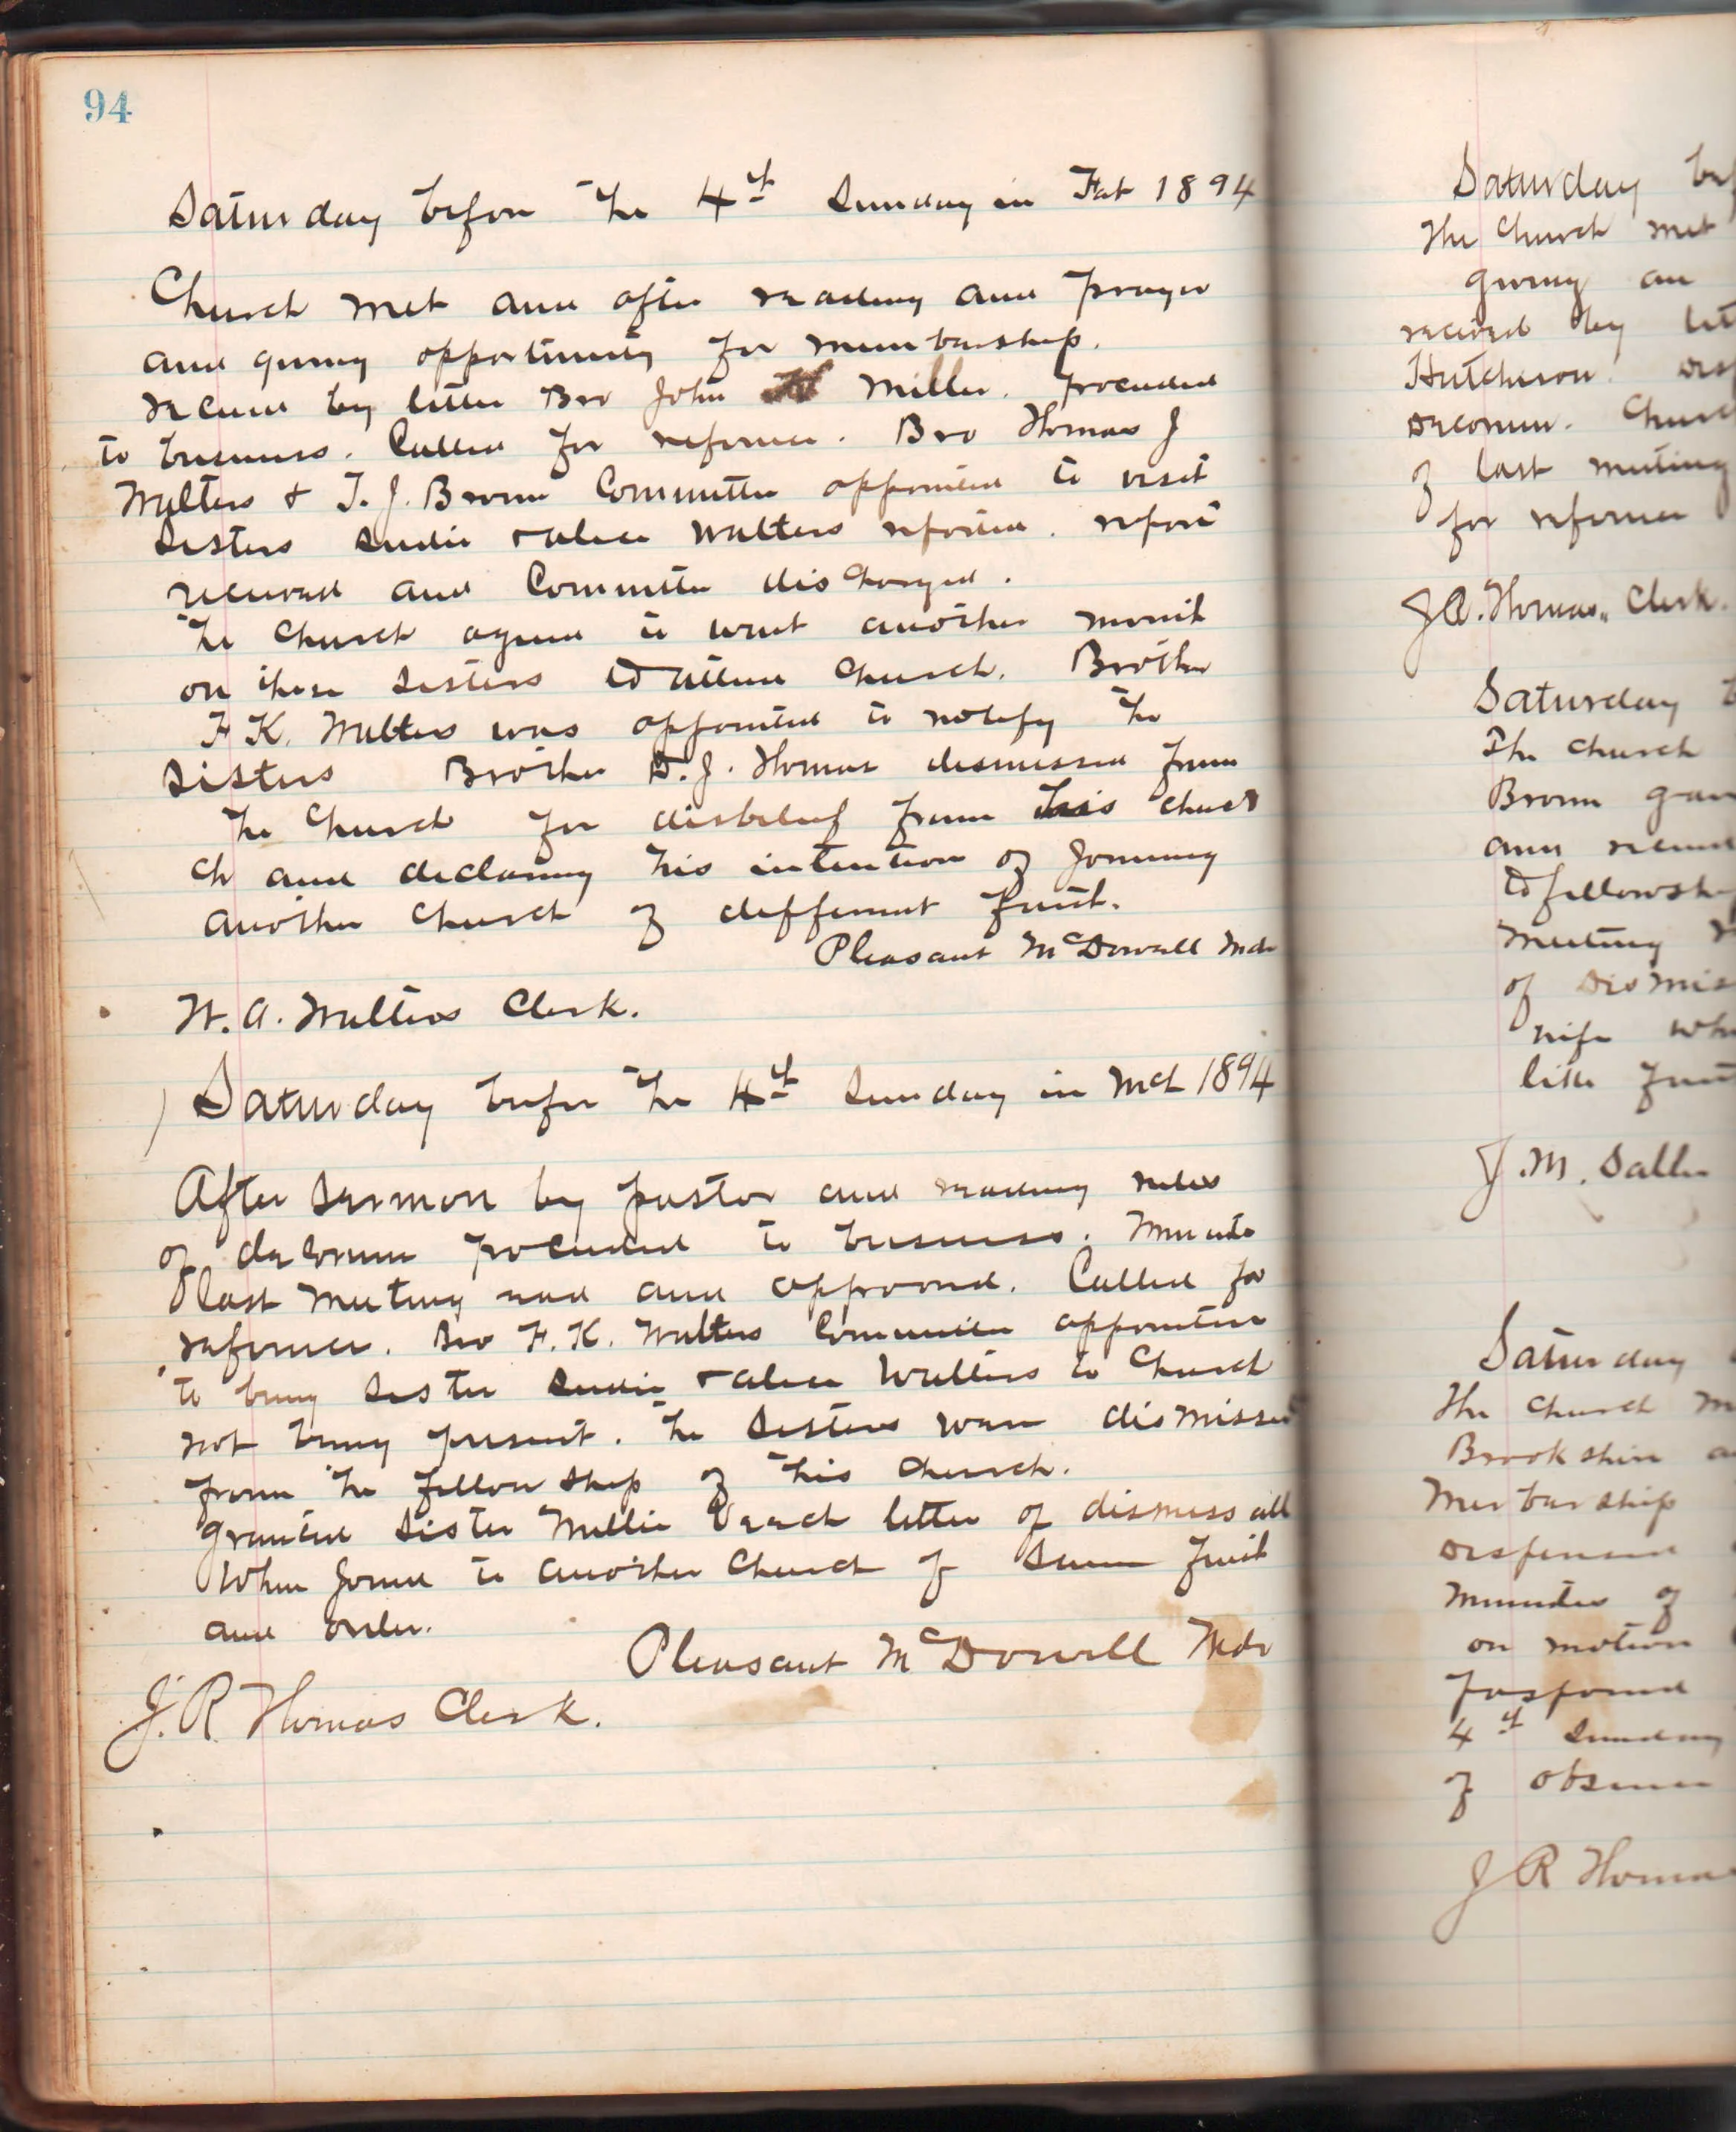 94
Saturday before the 4th Sunday in Feb 1894
Church met and after reading and prayer
and giving opportunity for membership.
received by letter Bro John Miller. proceeded
to business. Called for reference. Bro Thomas J
Walters & T. J. Brown Committee appointed to visit
Sisters Sudie & alice Walters reported. report
received and Committee discharged.
The Church agreed to wait another month
on these Sisters to attend Church. Brother
F. K. Walters was appointed to notify the
Sisters Brother D. J. Thomas dismissed from
the Church for disbelief from this Chur
ch and declaring his intention of Joining
another Church of different faith.
Pleasant McDowell Mdr
W. A. Walters Clerk.
Saturday before the 4th Sunday in Mch 1894
After Sermon by pastor and reading rules
of decorum proceeded to business. Minutes
last Meeting read and approved. Called for
reference. Bro F. K. Walters Committee appointed
to bring Sister Sudie & alice Walters to Church
not being present. The Sisters ware dismissed
from the fellowship of this Church.
granted Sister Mellie Veach letter of dismissall
When Joined to another Church of Same faith
and order.
Pleasant McDowell Mdr
J. R. Thomas Clerk.
Saturday
The Church met
giving an
received by
Hutcherson.
decorum.
of last meeting
for reference
Thomas. Clerk.
Saturday
The Church
Brown
and
to fellowsh
Meeting
of Dismis
wife
like
J. M.
Saturday
The Church
Brookshire
Membership
dispensed
Minutes of
on motion
Postponed
4th Sunday
of
J R Thoma